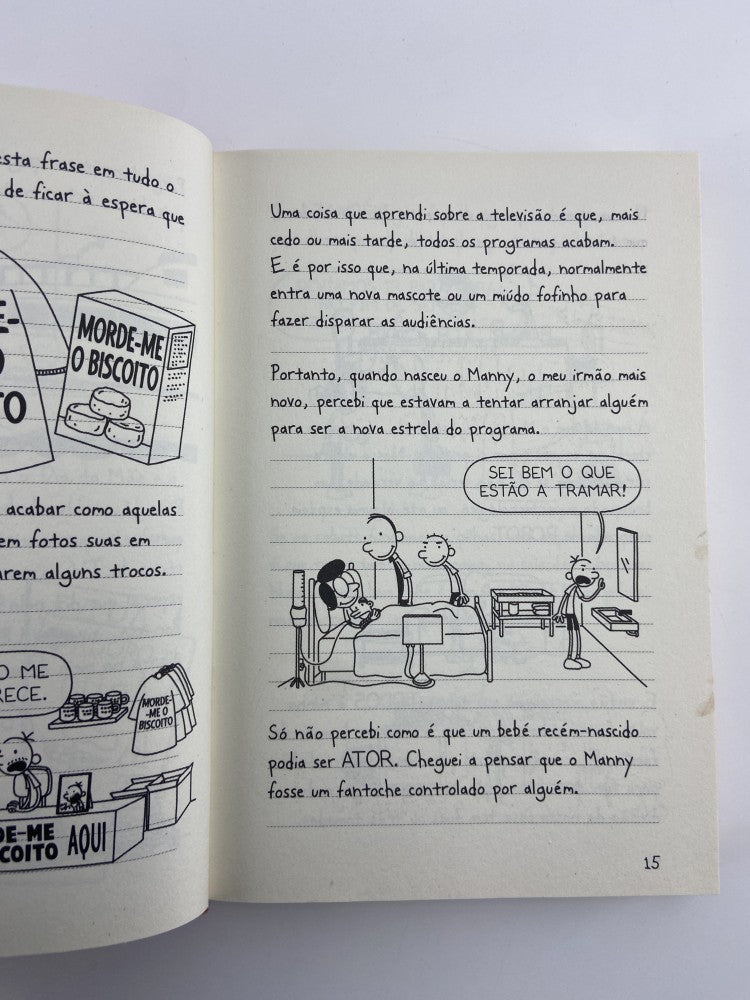 esta frase em tudo o
de ficar à espera que
MORDE-ME
O BISCOITO
acabar como aquelas
em fotos suas em
arem alguns trocos.
O ME
RECE.
MORDE-
-ME O
BISCOITO
DE-ME
SCOITO AQUI
Uma coisa que aprendi sobre a televisão é que, mais
cedo ou mais tarde, todos os programas acabam.
E é por isso que, na última temporada, normalmente
entra uma nova mascote ou um miúdo fofinho para
fazer disparar as audiências.
Portanto, quando nasceu o Manny, o meu irmão mais
novo, percebi que estavam a tentar arranjar alguém
para ser a nova estrela do programa.
SEI BEM O QUE
ESTÃO A TRAMAR!
Só não percebi como é que um bebé recém-nascido
podia ser ATOR. Cheguei a pensar que o Manny
fosse um fantoche controlado por alguém.
15